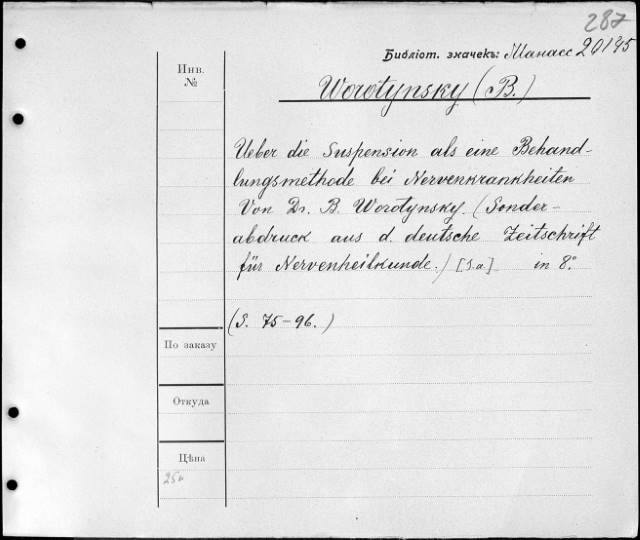 287
Библіот. значекъ: Манасс 20145
Инв.
№
Worotynsky (B.)
Ueber die Suspension als eine Behand-
lungsmethode bei Nervenkrankheiten
Von Dr. B. Worotynsky. (Sonder-
abdruck aus d. deutsche Zeitschrift
für Nervenheilkunde.) [S.a.] in 8°
(S. 75-96.)
По заказу
Откуда
Цѣна